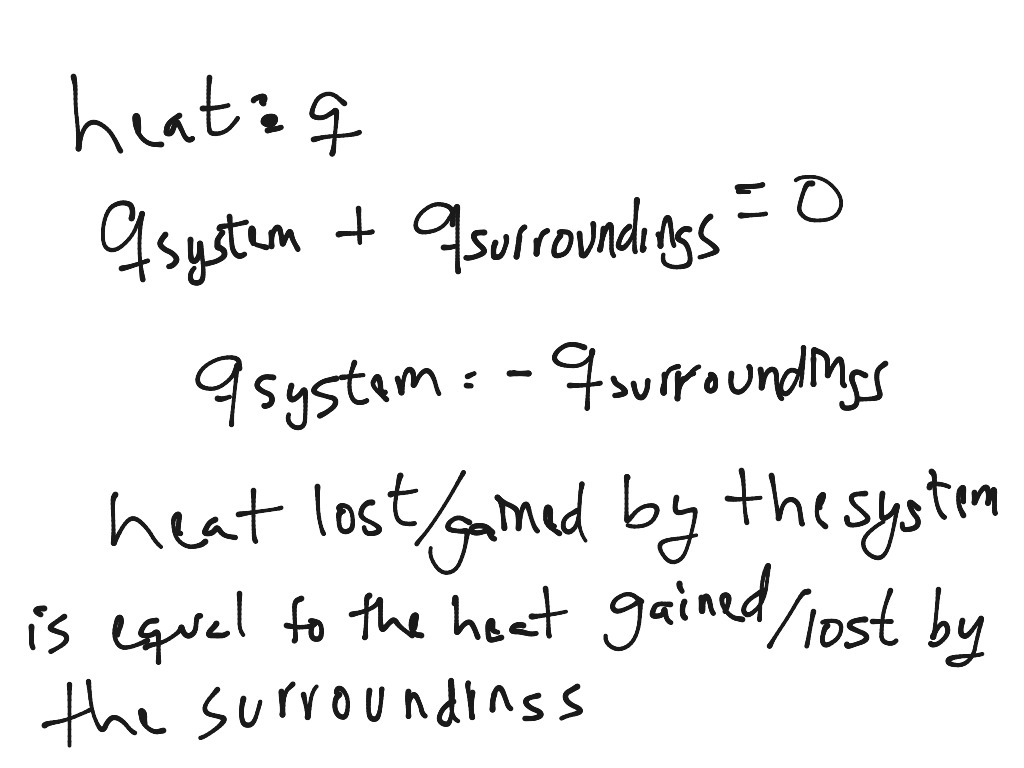 heat: q
q system + q surroundings = 0
q system = - q surroundings
heat lost/gained by the system
is equal to the heat gained/lost by
the surroundings